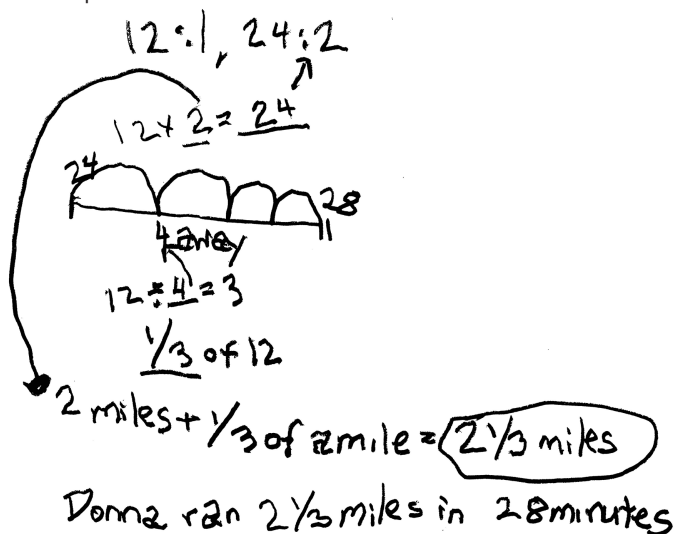 12:1, 24:2
12x2=24
24
28
4 away
12÷4=3
1/3 of 12
2 miles+1/3 of a mile=2 1/3 miles
Donna ran 2 1/3 miles in 28 minutes